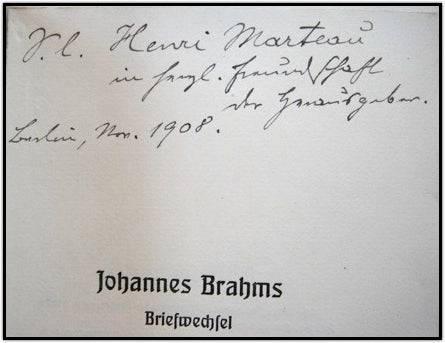 S. l. Henri Marteau
in herzl. Freundschaft
der Herausgeber.
Berlin, Nov. 1908.
Johannes Brahms
Briefwechsel